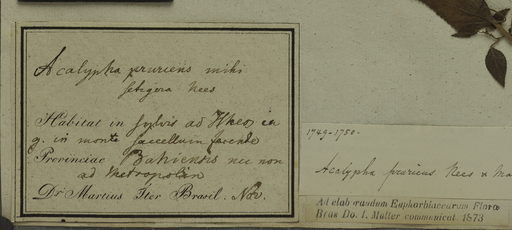 Acalypha pruriens mihi
setigera Nees
Habitat in sylvis ad Ilheos in
g. in monte sacellum ferente
Provinciae Bahiensis nec non
ad Metropolin
Dr Martius Iter Brasil. Nov.
1749-1750.
Acalypha pruriens Nees & Ma
Ad elaborandum Euphorbiacearum Florae
Bras Do. I. Muller communicat. 1873